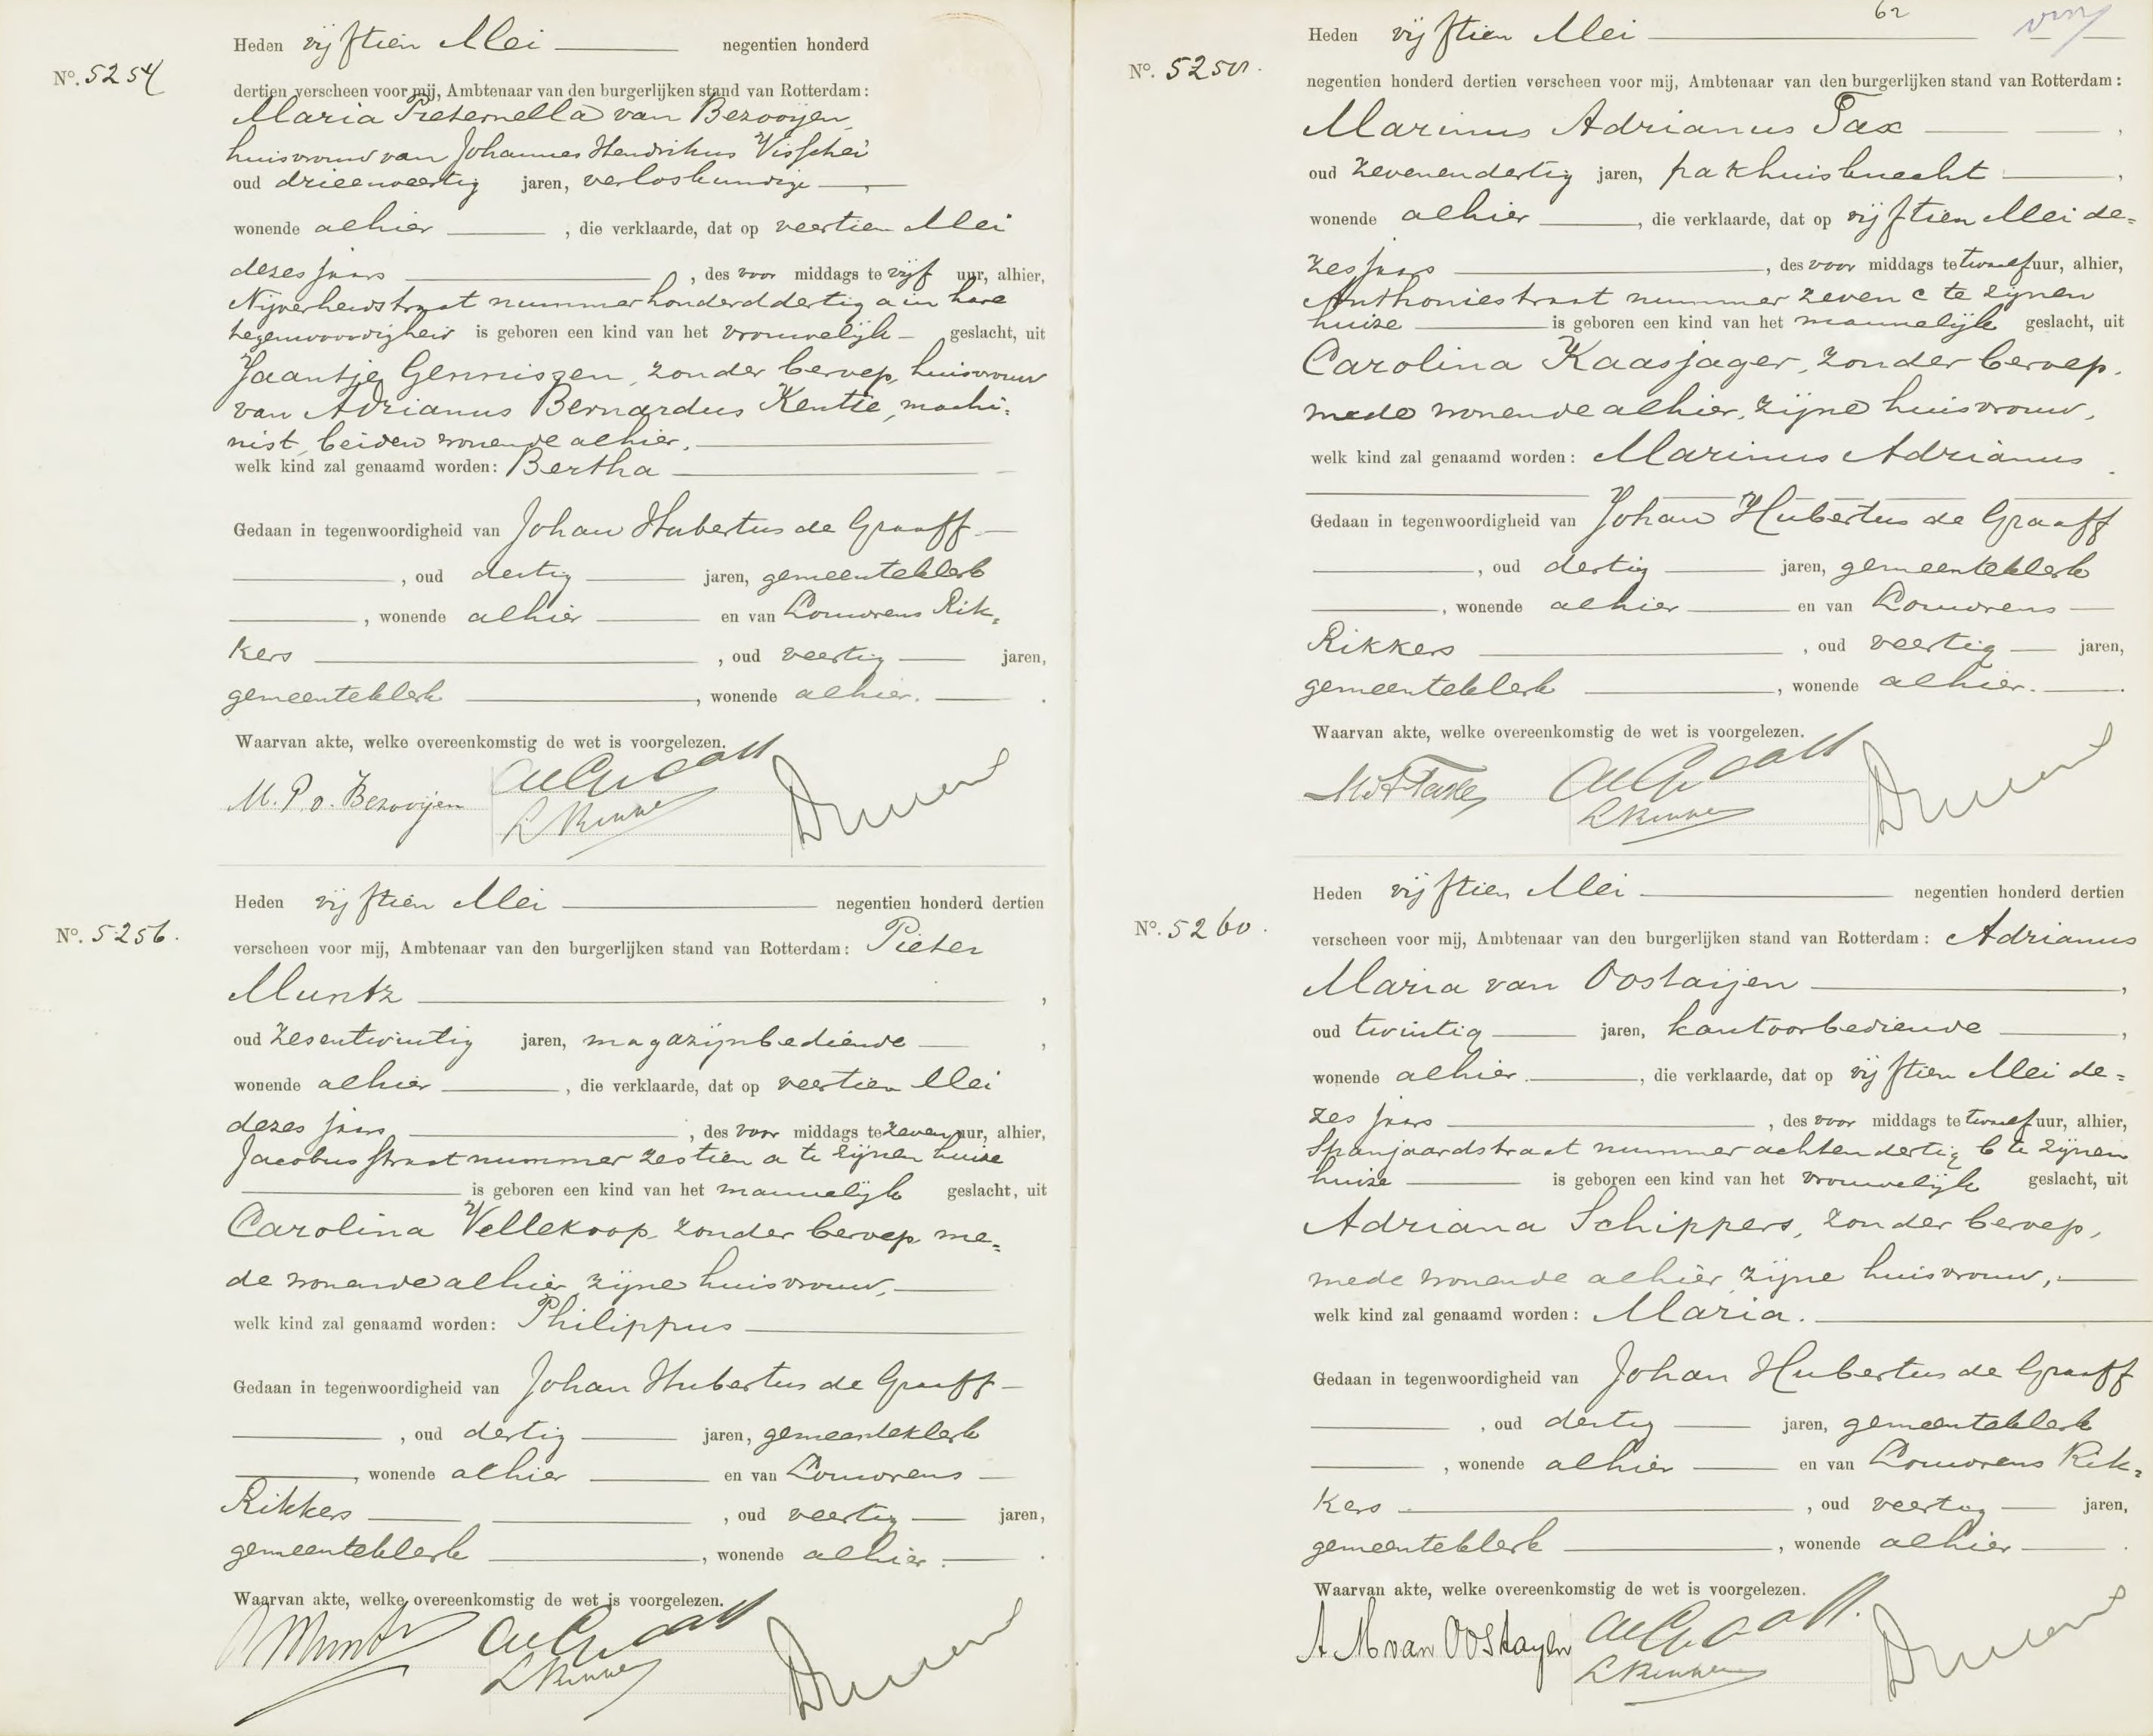 Heden vijftien Mei negentien honderd
No. 5254
dertien verscheen voor mij, Ambtenaar van den burgerlijken stand van Rotterdam:
Maria Pieternella van Bezooijen,
huisvrouw van Johannes Hendrikus Visscher
oud drieenveertig jaren, verloskundige
wonende alhier, die verklaarde, dat op veertien Mei
dezes jaars, des voor middags te vijf uur, alhier,
Nijverheidstraat nummer honderd dertig a in hare
tegenwoordigheid is geboren een kind van het vrouwelijk geslacht, uit
Jaantje Gennissen, zonder beroep, huisvrouw
van Adrianus Bernardus Kentie, machi=
nist, beiden wonende alhier,
welk kind zal genaamd worden: Bertha
Gedaan in tegenwoordigheid van Johan Hubertus de Graaff
, oud dertig jaren, gemeenteklerk
, wonende alhier en van Louwrens Rik=
kers, oud veertig jaren,
gemeenteklerk, wonende alhier.
Waarvan akte, welke overeenkomstig de wet is voorgelezen.
M. P. v. Bezooijen
Heden vijftien Mei negentien honderd dertien
No. 5256.
verscheen voor mij, Ambtenaar van den burgerlijken stand van Rotterdam: Pieter
Muntz,
oud zesentwintig jaren, magazijnbediende,
wonende alhier, die verklaarde, dat op veertien Mei
dezes jaars, des voor middags te zeven uur, alhier,
Jacobusstraat nummer zestien a te zijnen huize
is geboren een kind van het mannelijk geslacht, uit
Carolina Vellekoop, zonder beroep, me=
de wonende alhier, zijne huisvrouw,
welk kind zal genaamd worden: Philippus
Gedaan in tegenwoordigheid van Johan Hubertus de Graaff
, oud dertig jaren, gemeenteklerk
, wonende alhier en van Louwrens
Rikkers, oud veertig jaren,
gemeenteklerk, wonende alhier.
Waarvan akte, welke overeenkomstig de wet is voorgelezen.
62
Heden vijftien Mei
No.
negentien honderd dertien verscheen voor mij, Ambtenaar van den burgerlijken stand van Rotterdam:
Marinus Adrianus Tax,
oud zevenendertig jaren, pakhuisknecht,
wonende alhier, die verklaarde, dat op vijftien Mei de=
zes jaars, des voor middags te twaalf uur, alhier,
Anthoniestraat nummer zeven c te zijnen
huize is geboren een kind van het mannelijk geslacht, uit
Carolina Kaasjager, zonder beroep,
mede wonende alhier, zijne huisvrouw,
welk kind zal genaamd worden: Marinus Adrianus.
Gedaan in tegenwoordigheid van Johan Hubertus de Graaff
, oud dertig jaren, gemeenteklerk
, wonende alhier en van Louwrens
Rikkers, oud veertig jaren,
gemeenteklerk, wonende alhier.
Waarvan akte, welke overeenkomstig de wet is voorgelezen.
Heden vijftien Mei negentien honderd dertien
No. 5260.
verscheen voor mij, Ambtenaar van den burgerlijken stand van Rotterdam: Adrianus
Maria van Oostaijen,
oud twintig jaren, kantoorbediende,
wonende alhier, die verklaarde, dat op vijftien Mei de=
zes jaars, des voor middags te twaalf uur, alhier,
Spanjaardstraat nummer achtendertig b te zijnen
huize is geboren een kind van het vrouwelijk geslacht, uit
Adriana Schippers, zonder beroep,
mede wonende alhier, zijne huisvrouw,
welk kind zal genaamd worden: Maria.
Gedaan in tegenwoordigheid van Johan Hubertus de Graaff
, oud dertig jaren, gemeenteklerk
, wonende alhier en van Louwrens Rik=
kers, oud veertig jaren,
gemeenteklerk, wonende alhier.
Waarvan akte, welke overeenkomstig de wet is voorgelezen.
A M van Oostayen